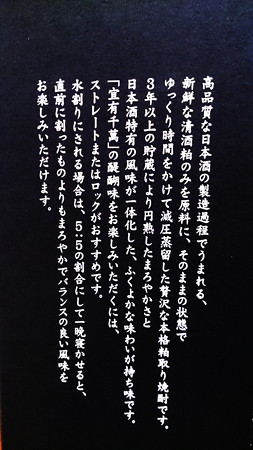 高品質な日本酒の製造過程でうまれる、
新鮮な清酒粕のみを原料に、そのままの状態で
ゆっくり時間をかけて減圧蒸留した贅沢な本格粕取り焼酎です。
3年以上の貯蔵により円熟したまろやかさと
日本酒特有の風味が一体化した、ふくよかな味わいが持ち味です。
「宜有千萬」の醍醐味をお楽しみいただくには、
ストレートまたはロックがおすすめです。
水割りにされる場合は、5:5の割合にして一晩寝かせると、
直前に割ったものよりもまろやかでバランスの良い風味を
お楽しみいただけます。